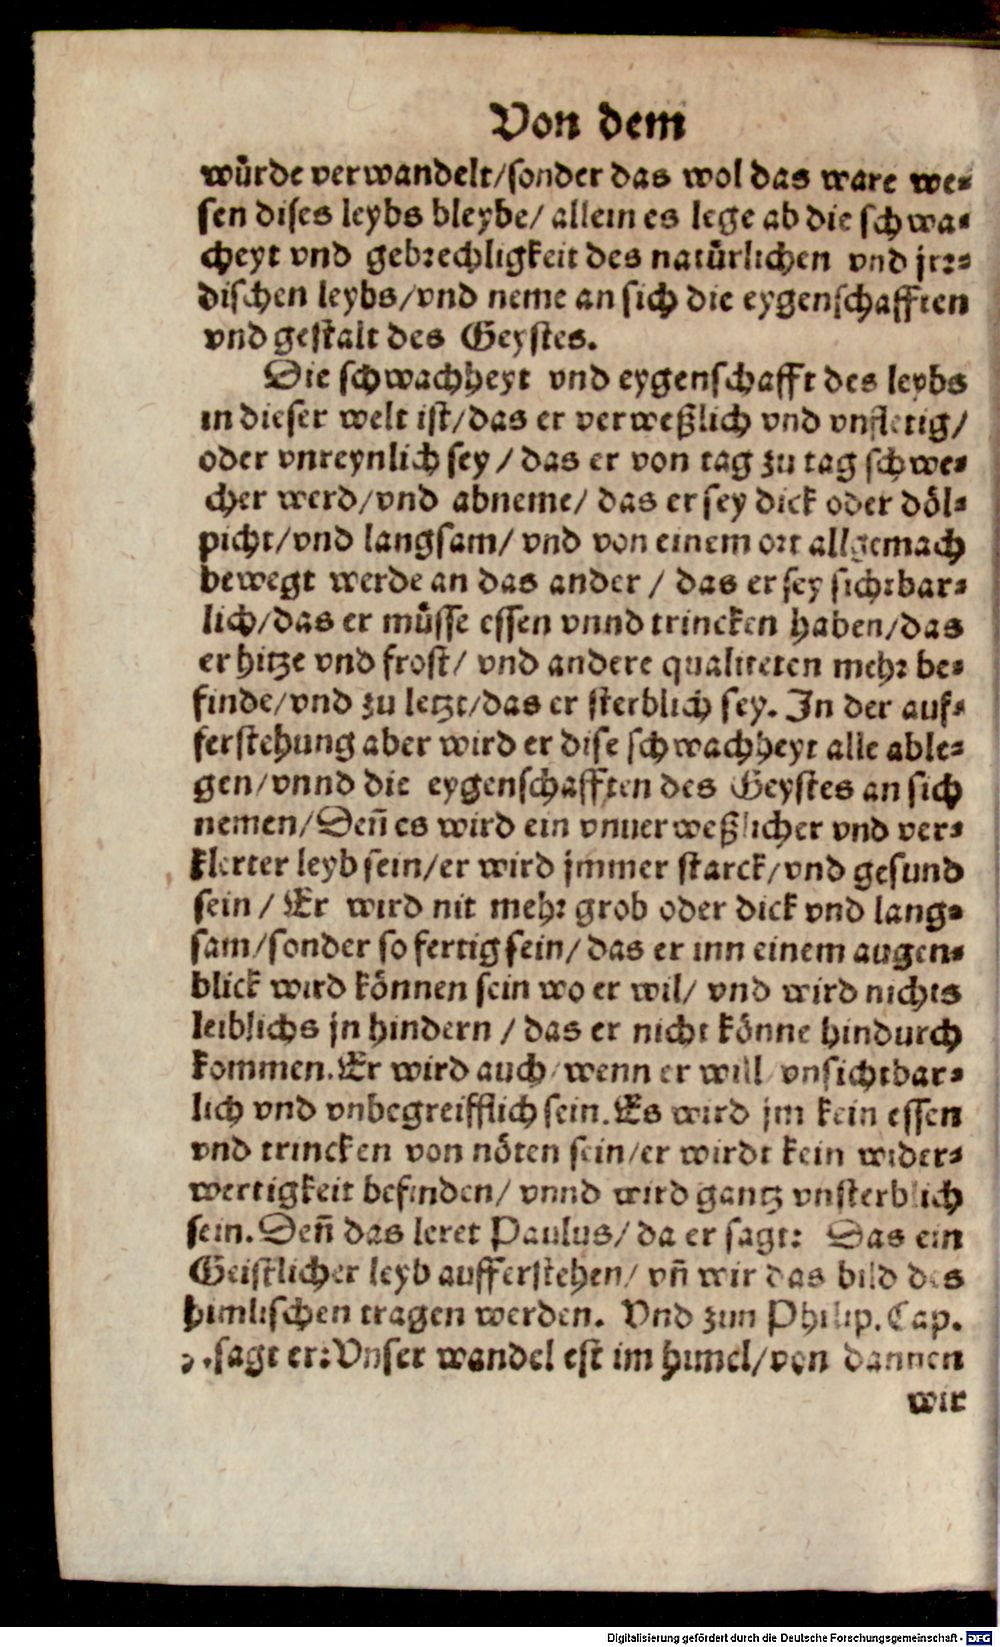 Von dem
würde verwandelt/sonder das wol das ware we⸗
sen dises leybs bleybe/ allein es lege ab die schwa⸗
cheyt vnd gebrechligkeit des natürlichen vnd jrr⸗
dischen leybs/vnd neme an sich die eygenschafften
vnd gestalt des Geystes.
Die schwachheyt vnd eygenschafft des leybs
in dieser welt ist/das er verweßlich vnd vnfletig/
oder vnreynlich sey/ das er von tag zu tag schwe⸗
cher werd/vnd abneme/ das er sey dick oder döl⸗
picht/vnd langsam/ vnd von einem ort allgemach
bewegt werde an das ander/ das er sey sichtbar⸗
lich/das er müsse essen vnnd trincken haben/das
er hitze vnd frost/ vnd andere qualiteten mehr be⸗
finde/vnd zu letzt/das er sterblich sey. In der auf⸗
ferstehung aber wird er dise schwachheyt alle able⸗
gen/vnnd die eygenschafften des Geystes an sich
nemen/Deñ es wird ein vnuerweßlicher vnd ver⸗
klerter leyb sein/er wird jmmer starck/vnd gesund
sein/ Er wird nit mehr grob oder dick vnd lang⸗
sam/sonder so fertig sein/ das er inn einem augen⸗
blick wird können sein wo er wil/ vnd wird nichts
leiblichs jn hindern/ das er nicht könne hindurch
kommen. Er wird auch/wenn er will/vnsichtbar⸗
lich vnd vnbegreifflich sein. Es wird jm kein essen
vnd trincken von nöten sein/er wirdt kein wider⸗
wertigkeit befinden/ vnnd wird gantz vnsterblich
sein. Deñ das leret Paulus/ da er sagt: Das ein
Geistlicher leyb aufferstehen/ vñ wir das bild des
himlischen tragen werden. Vnd zun Philip. Cap.
3. sagt er: Vnser wandel est im himel/von dannen
wir
Digitalisierung gefördert durch die Deutsche Forschungsgemeinschaft - DFG